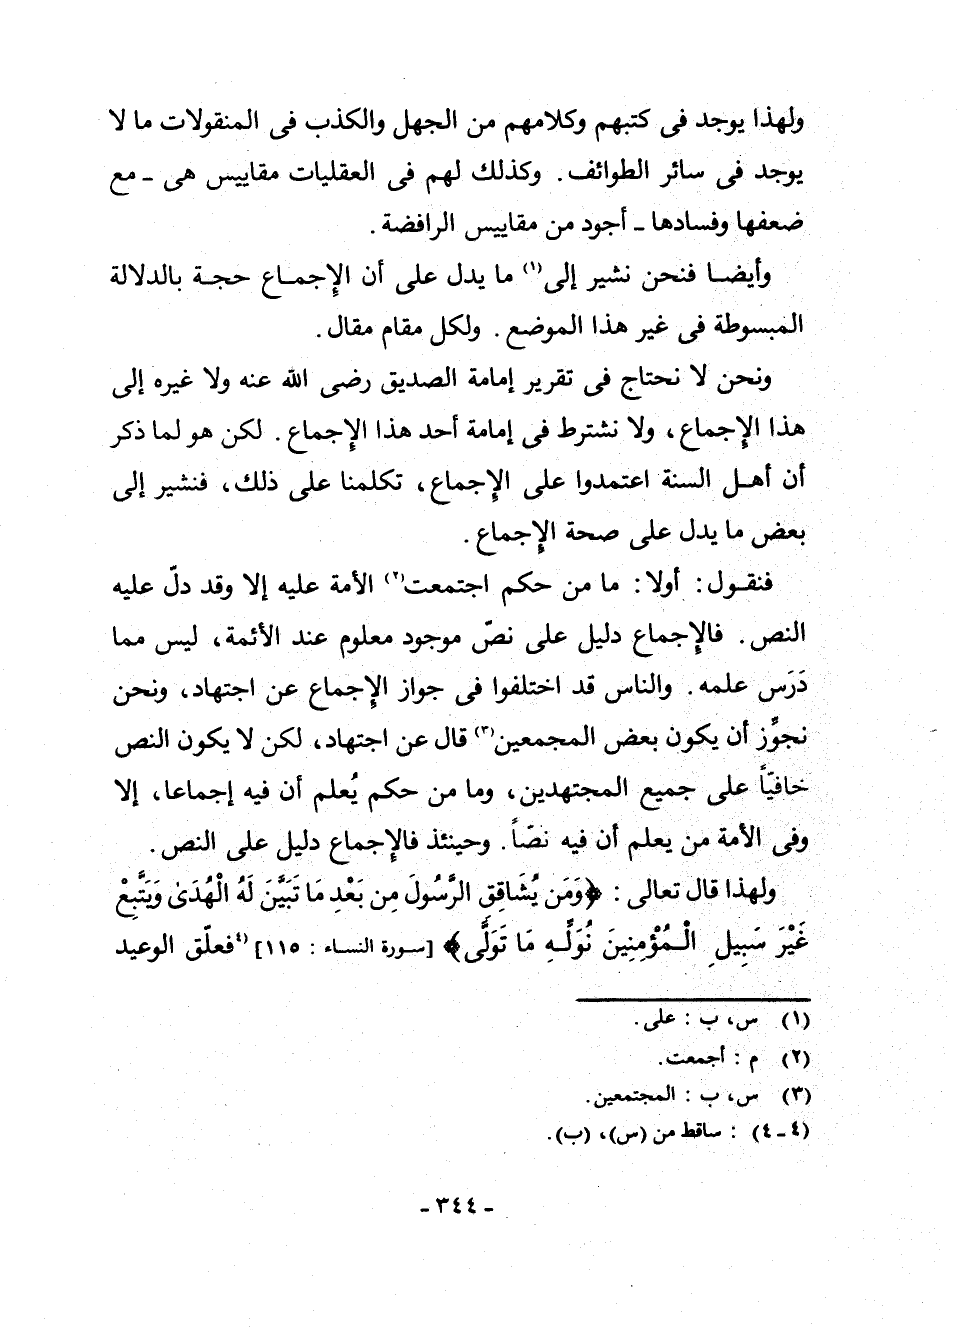 ولهذا يوجد فى كتبهم وكلامهم من الجهل والكذب فى المنقولات ما لا
يوجد فى سائر الطوائف. وكذلك لهم فى العقليات مقاييس هى ـ مع
ضعفها وفسادها ـ أجود من مقاييس الرافضة.
وأيضـا فنحن نشير إلى(١) ما يدل على أن الإجمـاع حجـة بالدلالة
المبسوطة فى غير هذا الموضع. ولكل مقام مقال.
ونحن لا نحتاج فى تقرير إمامة الصديق رضى الله عنه ولا غيره إلى
هذا الإجماع، ولا نشترط فى إمامة أحد هذا الإجماع. لكن هو لما ذكر
أن أهـل السنة اعتمدوا على الإجماع، تكلمنا على ذلك، فنشير إلى
بعض ما يدل على صحة الإجماع.
فنقـول: أولا: ما من حكم اجتمعت(٢) الأمة عليه إلا وقد دلّ عليه
النص. فالإجماع دليل على نصّ موجود معلوم عند الأئمة، ليس مما
دَرَس علمه. والناس قد اختلفوا فى جواز الإجماع عن اجتهاد، ونحن
نجوِّز أن يكون بعض المجمعين(٣) قال عن اجتهاد، لكن لا يكون النص
خافيّاً على جميع المجتهدين، وما من حكم يُعلم أن فيه إجماعا، إلا
وفى الأمة من يعلم أن فيه نصّاً. وحينئذ فالإجماع دليل على النص.
ولهذا قال تعالى: ﴿وَمَن يُشَاقِقِ الرَّسُولَ مِن بَعْدِ مَا تَبَيَّنَ لَهُ الْهُدَىٰ وَيَتَّبِعْ
غَيْرَ سَبِيلِ الْـمُؤْمِنِينَ نُوَلِّـهِ مَا تَوَلَّى﴾ [سـورة النسـاء : ١١٥] (٤فعلّق الوعيد
(١) س، ب : على.
(٢) م : أجمعت.
(٣) س، ب : المجتمعين.
(٤ـ٤) : ساقط من (س)، (ب).
ـ ٣٤٤ ـ